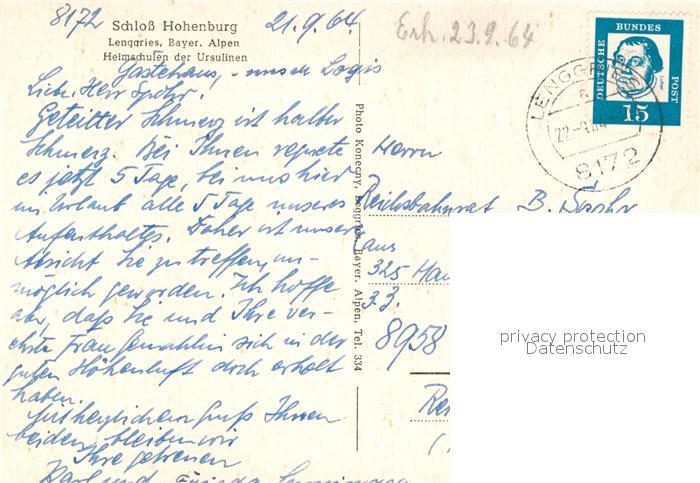 8172 21.9.64
Erh. 23.9.64
Schloß Hohenburg
Lenggries, Bayer. Alpen
Heimschulen der Ursulinen
Gästehaus, - unser Logis
Lieb. Herr Spohr!
Geteilter Schmerz ist halber
Schmerz. Bei Ihnen regnete
es jetzt 5 Tage, bei uns hier
im Urlaub alle 5 Tage unseres
Aufenthaltes. Daher ist unser
Absicht Sie zu treffen, un-
möglich geworden. Ich hoffe
aber, daß Sie und Ihre ver-
ehrte Frau Gemahlin sich in der
guten Höhenluft doch erholt
haben.
Mit herzlichem Gruß Ihnen
beiden bleiben wir
Ihre getreuen
Karl und Frieda
Photo Konecny, Lenggries, Bayer. Alpen, Tel. 334
DEUTSCHE BUNDES POST
15
LENGGRIES
8172
Herrn
Reichsbahnrat B. Spohr
aus
325
33.
8958
privacy protection
Datenschutz